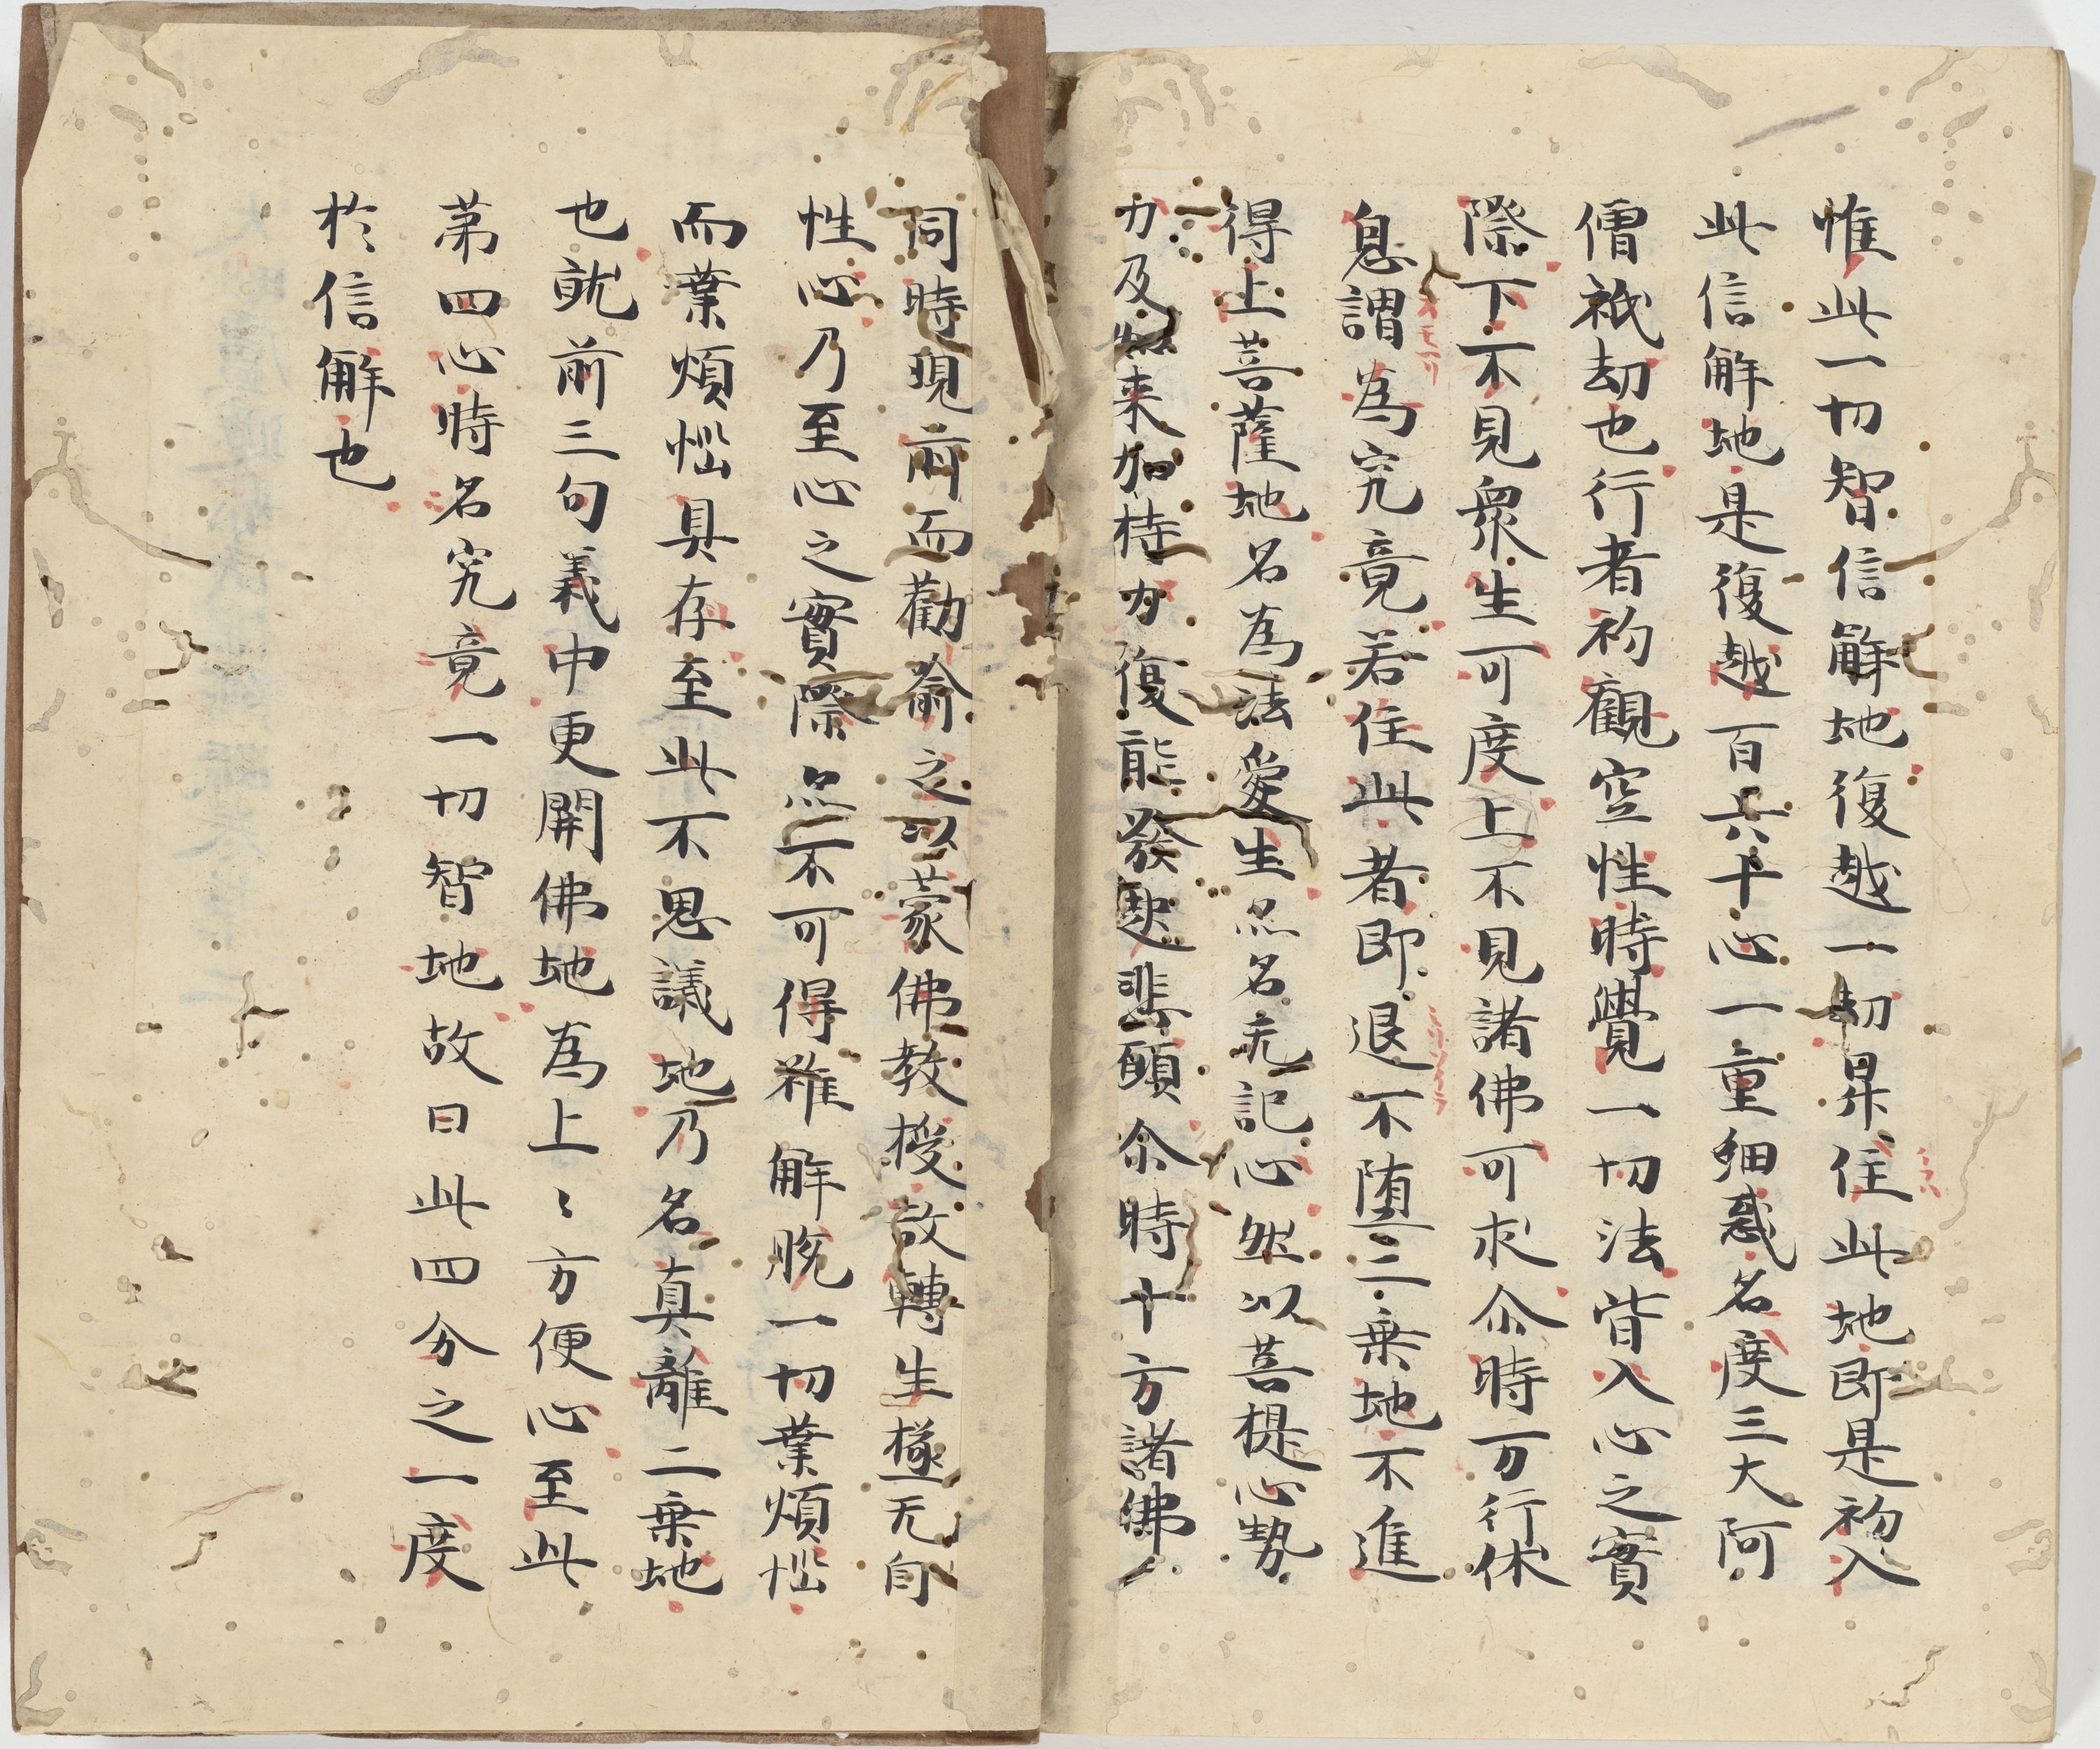 惟此一切智信解地復越一劫昇住此地即是初入
此信解地是復越百六十心一重細惑名度三大阿
僧祇劫也行者初觀空性時覺一切法皆入心之實
際下不見衆生可度上不見諸佛可求尒時万行休
息謂為究竟若住此者即退不墮二乗地不進
得上菩薩地名為法愛生亦名无記心然以菩提心勢
力及如来加持力復能發起悲願尒時十方諸佛
同時現前而勸喻之以蒙佛教授故轉生極无自
性心乃至心之實際亦不可得雖解脱一切業煩惱
而業煩惱具存至此不思議地乃名真離二乗地
也就前三句義中更開佛地為上〻方便心至此
第四心時名究竟一切智地故曰此四分之一度
於信解也